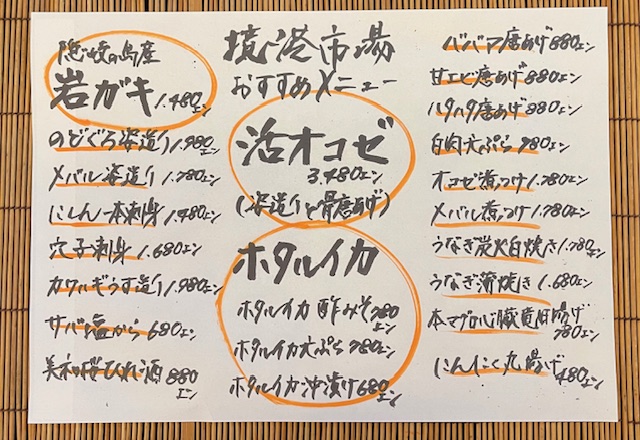 境港市場
おすすめメニュー
隠岐の島産
岩ガキ 1.480エン
のどぐろ姿造り 1.980エン
メバル姿造り 1.780エン
にしん一本刺身 1.480エン
穴子刺身 1.680エン
カワハギうす造り 1.980エン
サバ塩から 680エン
美和桜ひれ酒 880エン
活オコゼ
3.480エン
(姿造りと骨唐あげ)
ホタルイカ
ホタルイカ酢みそ 780エン
ホタルイカ天ぷら 780エン
ホタルイカ沖漬け 680エン
ババア唐あげ 880エン
甘エビ唐あげ 880エン
ハタハタ唐あげ 880エン
白肉天ぷら 980エン
オコゼ煮つけ 1.780エン
メバル煮つけ 1.780エン
うなぎ炭火白焼き 1.780エン
うなぎ蒲焼き 1.680エン
本マグロ心臓竜田揚げ
780エン
にんにく丸揚げ
480エン